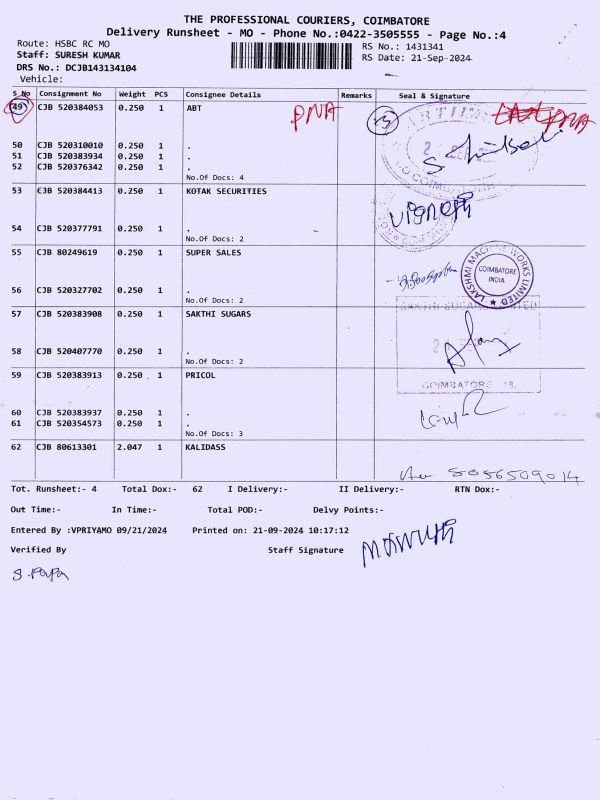 THE PROFESSIONAL COURIERS, COIMBATORE
Delivery Runsheet - MO - Phone No.:0422-3505555 - Page No.:4
Route: HSBC RC MO
RS No.: 1431341
Staff: SURESH KUMAR
RS Date: 21-Sep-2024
DRS No.: DCJB143134104
Vehicle:
S No Consignment No Weight PCS Consignee Details Remarks Seal & Signature
49 CJB 520384053 0.250 1 ABT PNA PNA
50 CJB 520310010 0.250 1 .
51 CJB 520383934 0.250 1 .
52 CJB 520376342 0.250 1 .
No.Of Docs: 4
53 CJB 520384413 0.250 1 KOTAK SECURITIES
Vignesh
54 CJB 520377791 0.250 1 .
No.Of Docs: 2
55 CJB 80249619 0.250 1 SUPER SALES
LAKSHMI MACHINE WORKS LIMITED
COIMBATORE
INDIA
56 CJB 520327702 0.250 1 .
No.Of Docs: 2
57 CJB 520383908 0.250 1 SAKTHI SUGARS
SAKTHI SUGARS LIMITED
58 CJB 520407770 0.250 1 .
No.Of Docs: 2
59 CJB 520383913 0.250 1 PRICOL
COIMBATORE 18.
60 CJB 520383937 0.250 1 .
61 CJB 520354573 0.250 1 .
No.Of Docs: 3
62 CJB 80613301 2.047 1 KALIDASS
5056509014
Tot. Runsheet:- 4 Total Dox:- 62 I Delivery:- II Delivery:- RTN Dox:-
Out Time:- In Time:- Total POD:- Delvy Points:-
Entered By :VPRIYAMO 09/21/2024 Printed on: 21-09-2024 10:17:12
Verified By Staff Signature
S. Papa